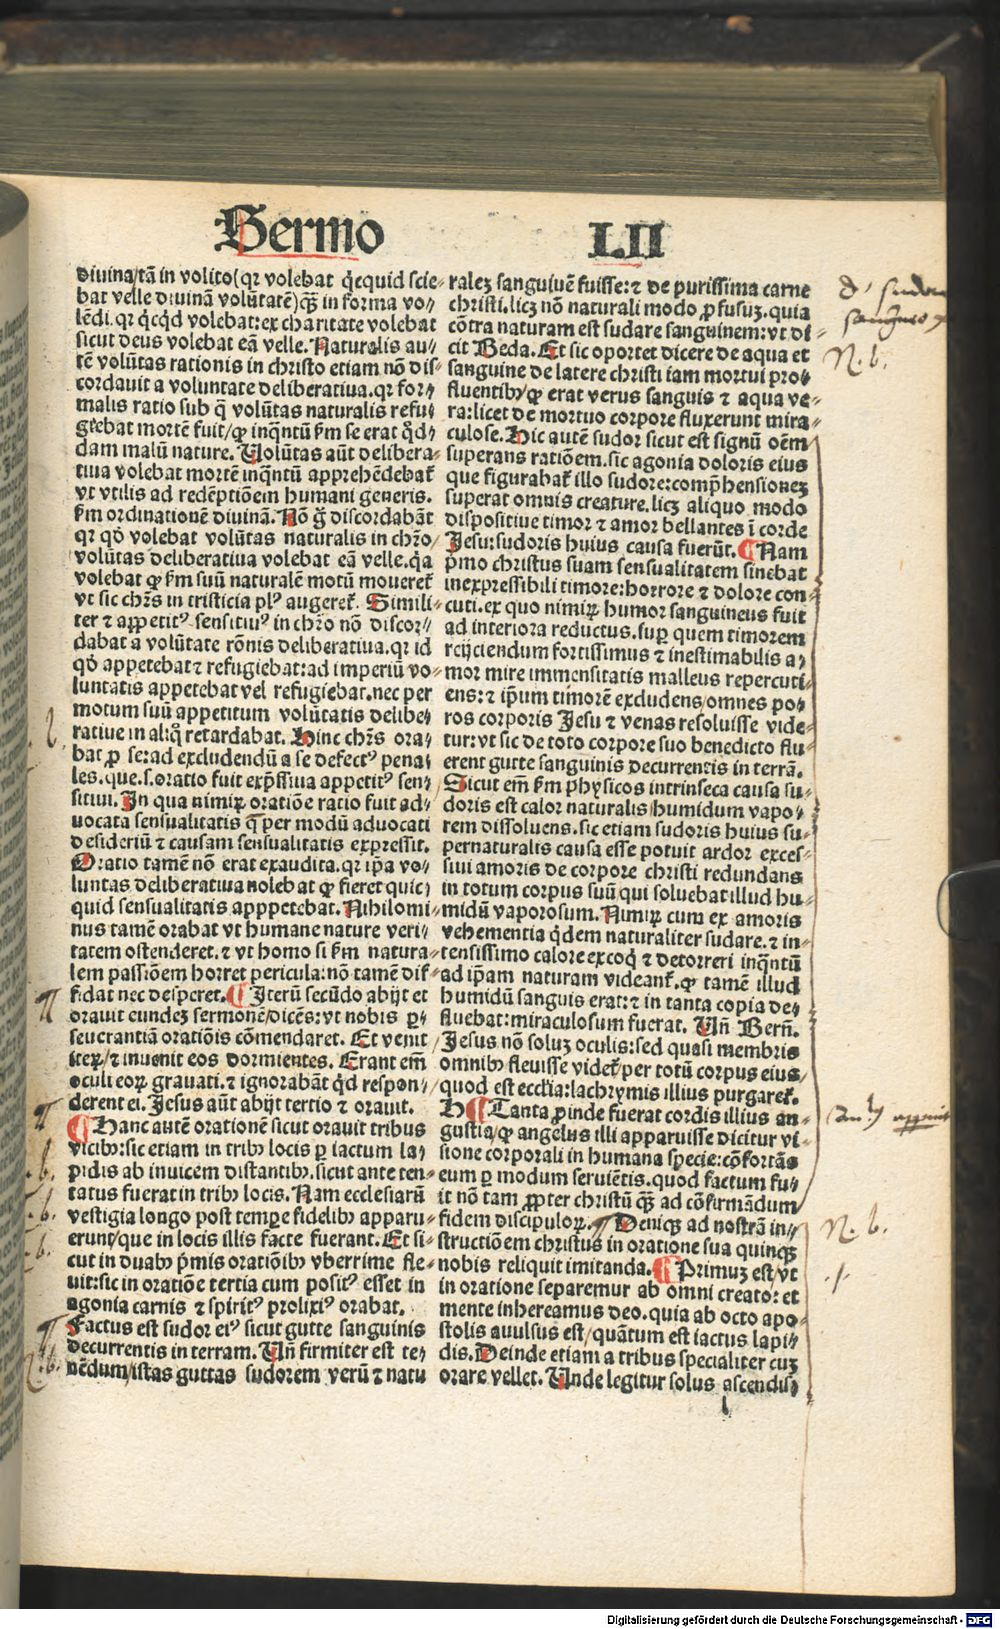 Sermo LII
diuina/tā in volito(qꝛ volebat q̇cquid scie⸗
bat velle diuinā volūtatē)qꝫ̄ in forma vo⸗
lēdi.qꝛ q̇cqd volebat:ex charitate volebat
sicut deus volebat eā velle. Naturalis au⸗
tē volūtas rationis in christo etiam nō dis⸗
cordauit a voluntate deliberatiua.qꝛ for⸗
malis ratio sub q̄ volūtas naturalis refu⸗
giebat mortē fuit/ꝙ inq̄ntū ẜm se erat q̇d⸗
dam malū nature. Uolūtas aūt delibera⸗
tiua volebat mortē inq̄ntū apprehēdebat̄
vt vtilis ad redēptiōem humani generis.
ẜm ordinationē diuinā. Nō g̊ discordabāt
qꝛ qd̓ volebat volūtas naturalis in chr̄o/
volūtas deliberatiua volebat eā velle.q̇a
volebat ꝙ ẜm suū naturalē motū moueret̄
vt sic chr̄s in tristicia plꝰ augeret̄. Simili⸗
ter ⁊ appetitꝰ sensitiuꝰ in chr̄o nō discor⸗
dabat a volūtate rōnis deliberatiua.qꝛ id
qd̓ appetebat ⁊ refugiebat:ad imperiū vo⸗
luntatis appetebat vel refugiebat.nec per
motum suū appetitum volūtatis delibe⸗
ratiue in aliq̊ retardabat. Hinc chr̄s ora⸗
bat ꝓ se:ad excludendū a se defectꝰ pena⸗
les.que.s.oratio fuit exp̄ssiua appetitꝰ sen⸗
sitiui. In qua nimiꝝ oratiōe ratio fuit ad⸗
uocata sensualitatis q̄ per modū aduocati
desideriū ⁊ causam sensualitatis expressit.
Oratio tamē nō erat exaudita.qꝛ ip̄a vo⸗
luntas deliberatiua nolebat ꝙ fieret quic⸗
quid sensualitatis apppetebat. Nihilomi⸗
nus tamē orabat vt humane nature veri⸗
tatem ostenderet.⁊ vt homo si ẜm natura⸗
lem passiōem horret pericula:nō tamē dif⸗
fidat nec desperet. ¶ Iterū secūdo abijt et
orauit eundeꝫ sermonē/dicēs:vt nobis ꝑ⸗
seuerantiā oratiōis cōmendaret. Et venit
iteꝝ/⁊ inuenit eos dormientes. Erant em̄
oculi eoꝝ grauati.⁊ ignorabāt q̇d respon⸗
derent ei. Jesus aūt abijt tertio ⁊ orauit.
¶ Hanc autē orationē sicut orauit tribus
vicibꝫ:sic etiam in tribꝫ locis ꝑ iactum la⸗
pidis ab inuicem distantibꝫ.sicut ante ten⸗
tatus fuerat in tribꝫ locis. Nam ecclesiarū
vestigia longo post tempe fidelibꝫ apparu⸗
erunt/que in locis illis facte fuerant. Et si⸗
cut in duabꝫ p̄mis oratiōibꝫ vberrime fle⸗
uit:sic in oratiōe tertia cum positꝰ esset in
agonia carnis ⁊ spiritꝰ prolixiꝰ orabat.
Factus est sudor eiꝰ sicut gutte sanguinis
decurrentis in terram. Un̄ firmiter est te⸗
nēdum/istas guttas sudorem verū ⁊ natu
raleꝫ sanguiuē fuisse:⁊ de purissima carne
christi.licꝫ nō naturali modo ꝓfusuꝫ.quia
cōtra naturam est sudare sanguinem:vt di⸗
cit Beda. Et sic oportet dicere de aqua et
sanguine de latere christi iam mortui pro⸗
fluentibꝫ/ꝙ erat verus sanguis ⁊ aqua ve⸗
ra:licet de mortuo corpore fluxerunt mira⸗
culose. Hic autē sudor sicut est signū oēm
superans ratiōem.sic agonia doloris eius
que figurabat̄ illo sudore:comp̄hensioneꝫ
superat omnis creature.licꝫ aliquo modo
dispositiue timor ⁊ amor bellantes ī corde
Jesu:sudoris huius causa fuerūt. ¶ Nam
p̄mo christus suam sensualitatem sinebat
inexpressibili timore:horrore ⁊ dolore con⸗
cuti.ex quo nimiꝝ humor sanguineus fuit
ad interiora reductus.suꝑ quem timorem
reijciendum fortissimus ⁊ inestimabilis a⸗
mor mire immensitatis malleus repercuti⸗
ens:⁊ ip̄um timorē excludens/omnes po⸗
ros corporis Jesu ⁊ venas resoluisse vide⸗
tur:vt sic de toto corpore suo benedicto flu⸗
erent gutte sanguinis decurrentis in terrā.
Sicut em̄ ẜm physicos intrinseca causa su⸗
doris est calor naturalis/humidum vapo⸗
rem dissoluens.sic etiam sudoris huius su⸗
pernaturalis causa esse potuit ardor exces⸗
siui amoris de corpore christi redundans
in totum corpus suū qui soluebat illud hu⸗
midū vaporosum. Nimiꝝ cum ex amoris
vehementia q̇dem naturaliter sudare.⁊ in⸗
tensissimo calore excoq̇ ⁊ detorreri inq̄ntū
ad ip̄am naturam videant̄.ꝙ tamē illud
humidū sanguis erat:⁊ in tanta copia de⸗
fluebat:miraculosum fuerat. Un̄ Bern̄.
Jesus nō soluꝫ oculis:sed quasi membris
omnibꝫ fleuisse videt̄/per totū corpus eius/
quod est eccl̄ia:lachrymis illius purgaret̄.
H ¶ Tanta ꝓinde fuerat cordis illius an⸗
gustia/ꝙ angelus illi apparuisse dicitur vi⸗
sione corporali in humana specie:cōfortās
eum ꝑ modum seruiētis.quod factum fu⸗
it nō tam ꝓpter christū qꝫ̄ ad cōfirmādum
fidem discipuloꝝ. ¶ Deniqꝫ ad nostrā in⸗
structiōem christus in oratione sua quinqꝫ
nobis reliquit imitanda. ¶ Primuꝫ est/vt
in oratione separemur ab omni creato:et
mente inhereamus deo.quia ab octo apo⸗
stolis auulsus est/quātum est iactus lapi⸗
dis. Deinde etiam a tribus specialiter cuꝫ
orare vellet. Unde legitur solus ascendis⸗
l
N. b.
N. b.
Digitalisierung gefördert durch die Deutsche Forschungsgemeinschaft - DFG